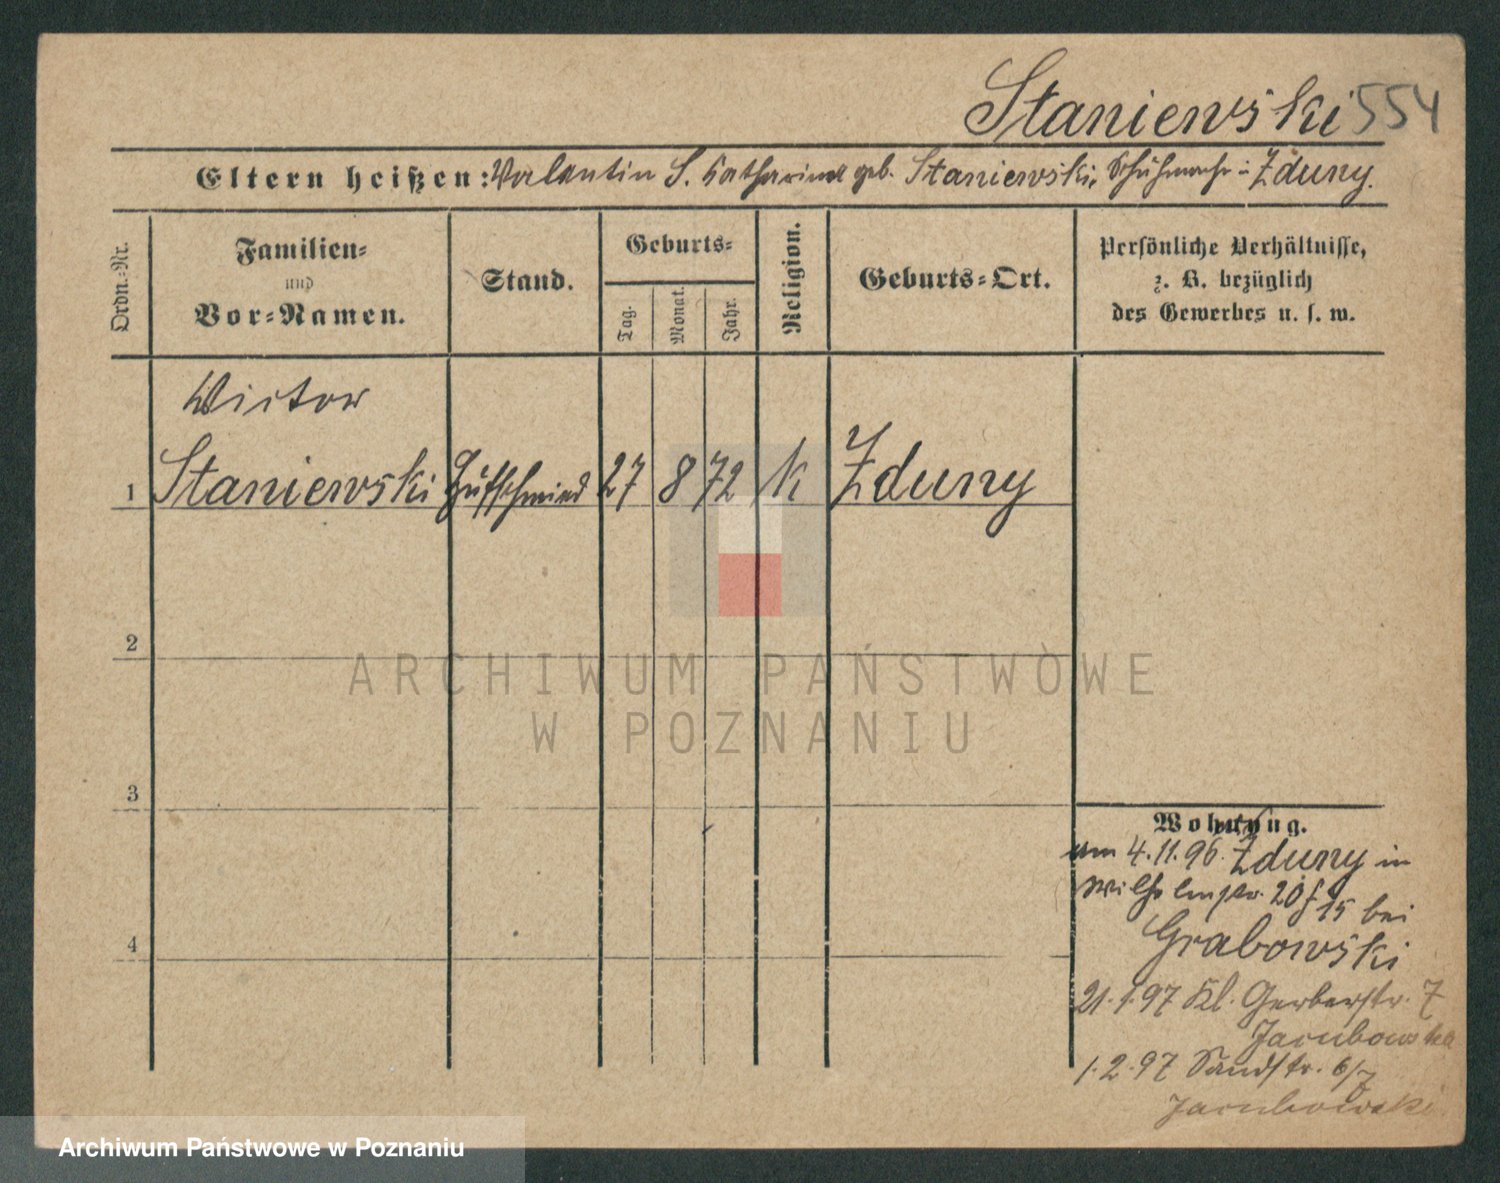 Staniewski 554
Eltern heißen: Valentin S. Catharina geb. Staniewski, Schuhmachr - Zduny.
Ordn.-Nr.
Familien-
und
Vor-Namen.
Stand.
Geburts-
Tag.
Monat.
Jahr.
Religion.
Geburts-Ort.
Persönliche Verhältnisse,
z. B. bezüglich
des Gewerbes u. s. w.
Victor
1 Staniewski Hufschmied 27 8 72 k Zduny
2
ARCHIWUM PAŃSTWOWE
W POZNANIU
3
4
Wohnung.
4.11.96. Zduny in
Wilhelmstr. 20 15 bei
Grabowski
21.1.97 Kl. Gerberstr. 7
Jacubowska
1.2.97 Sandstr. 6/7
Jacubowski
Archiwum Państwowe w Poznaniu